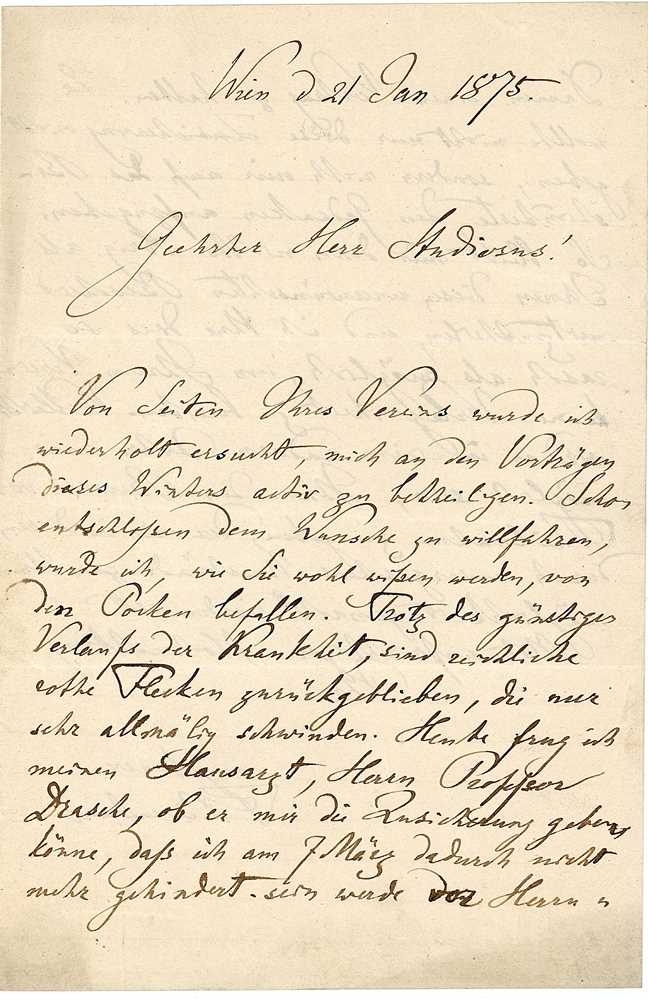 Wien d 21 Jan 1875.
Geehrter Herr Studiosus!
Von Seiten Ihres Vereins wurde ich
wiederholt ersucht, mich an den Vorträgen
dieses Winters activ zu betheiligen. Schon
entschlossen dem Wunsche zu willfahren,
wurde ich, wie Sie wohl wissen werden, von
den Pocken befallen. Trotz des günstigen
Verlaufs der Krankheit, sind reichliche
rothe Flecken zurückgeblieben, die nur
sehr allmälig schwinden. Heute frug ich
meinen Hausarzt, Herrn Professor
Drasche, ob er mir die Zusicherung geben
könne, daß ich am 7 März dadurch nicht
mehr gehindert sein werde vor Herrn u